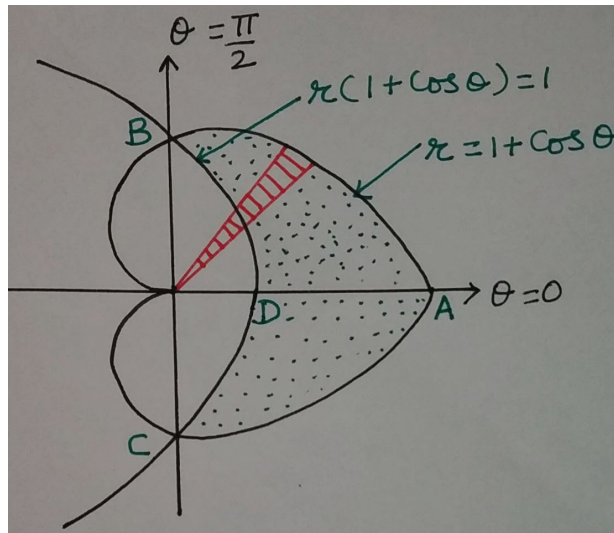 θ = π/2
r(1+cosθ)=1
B
r=1+cosθ
D
A
θ=0
C